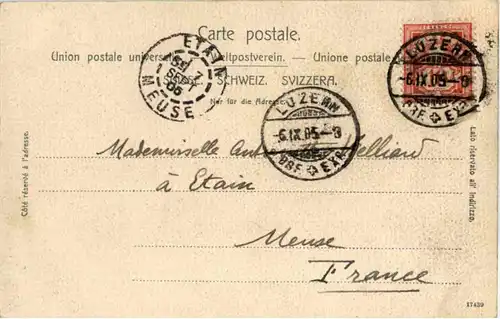 Carte postale.
Union postale universelle. Weltpostverein. — Unione postale
SCHWEIZ. SVIZZERA.
Nur für die Adresse.
ETAIN
7
SEPT
05
MEUSE
LUZERN
-6.IX.05-9
BRF EXP.
LUZERN
-6.IX.05-9
BRF EXP.
Côté réservé à l'adresse.
Lato riservato all' indirizzo.
Mademoiselle
à Etain
Meuse
France
17439